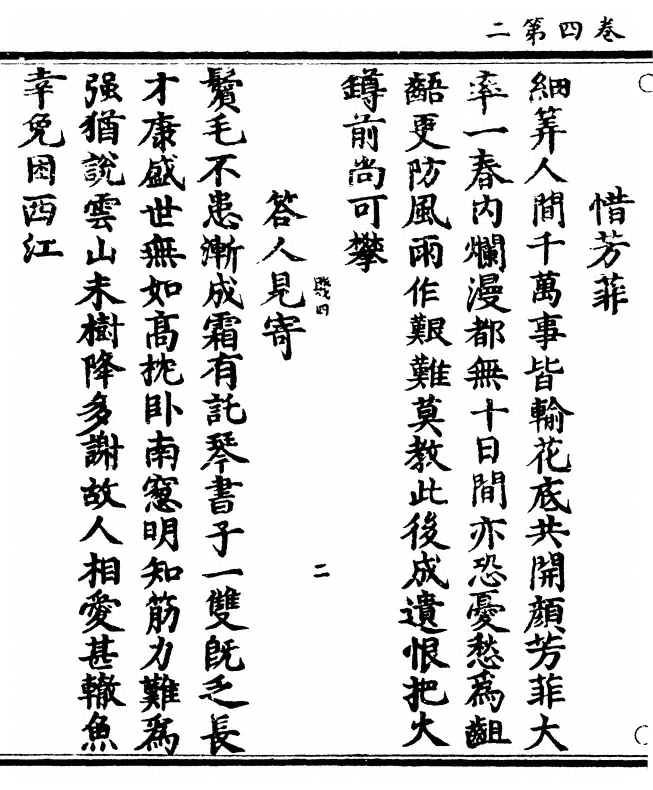 二第四卷
惜芳菲
細筭人間千萬事皆輸花底共開顔芳菲大
率一春内爛漫都無十日間亦恐憂愁爲齟
齬更防風雨作艱難莫教此後成遺恨把火
罇前尚可攀
二
答人見寄
鬢毛不患漸成霜有託琴書子一雙既乏長
才康盛世無如高枕卧南窻明知筋力難爲
强猶說雲山未樹降多謝故人相愛甚轍魚
幸免困西江